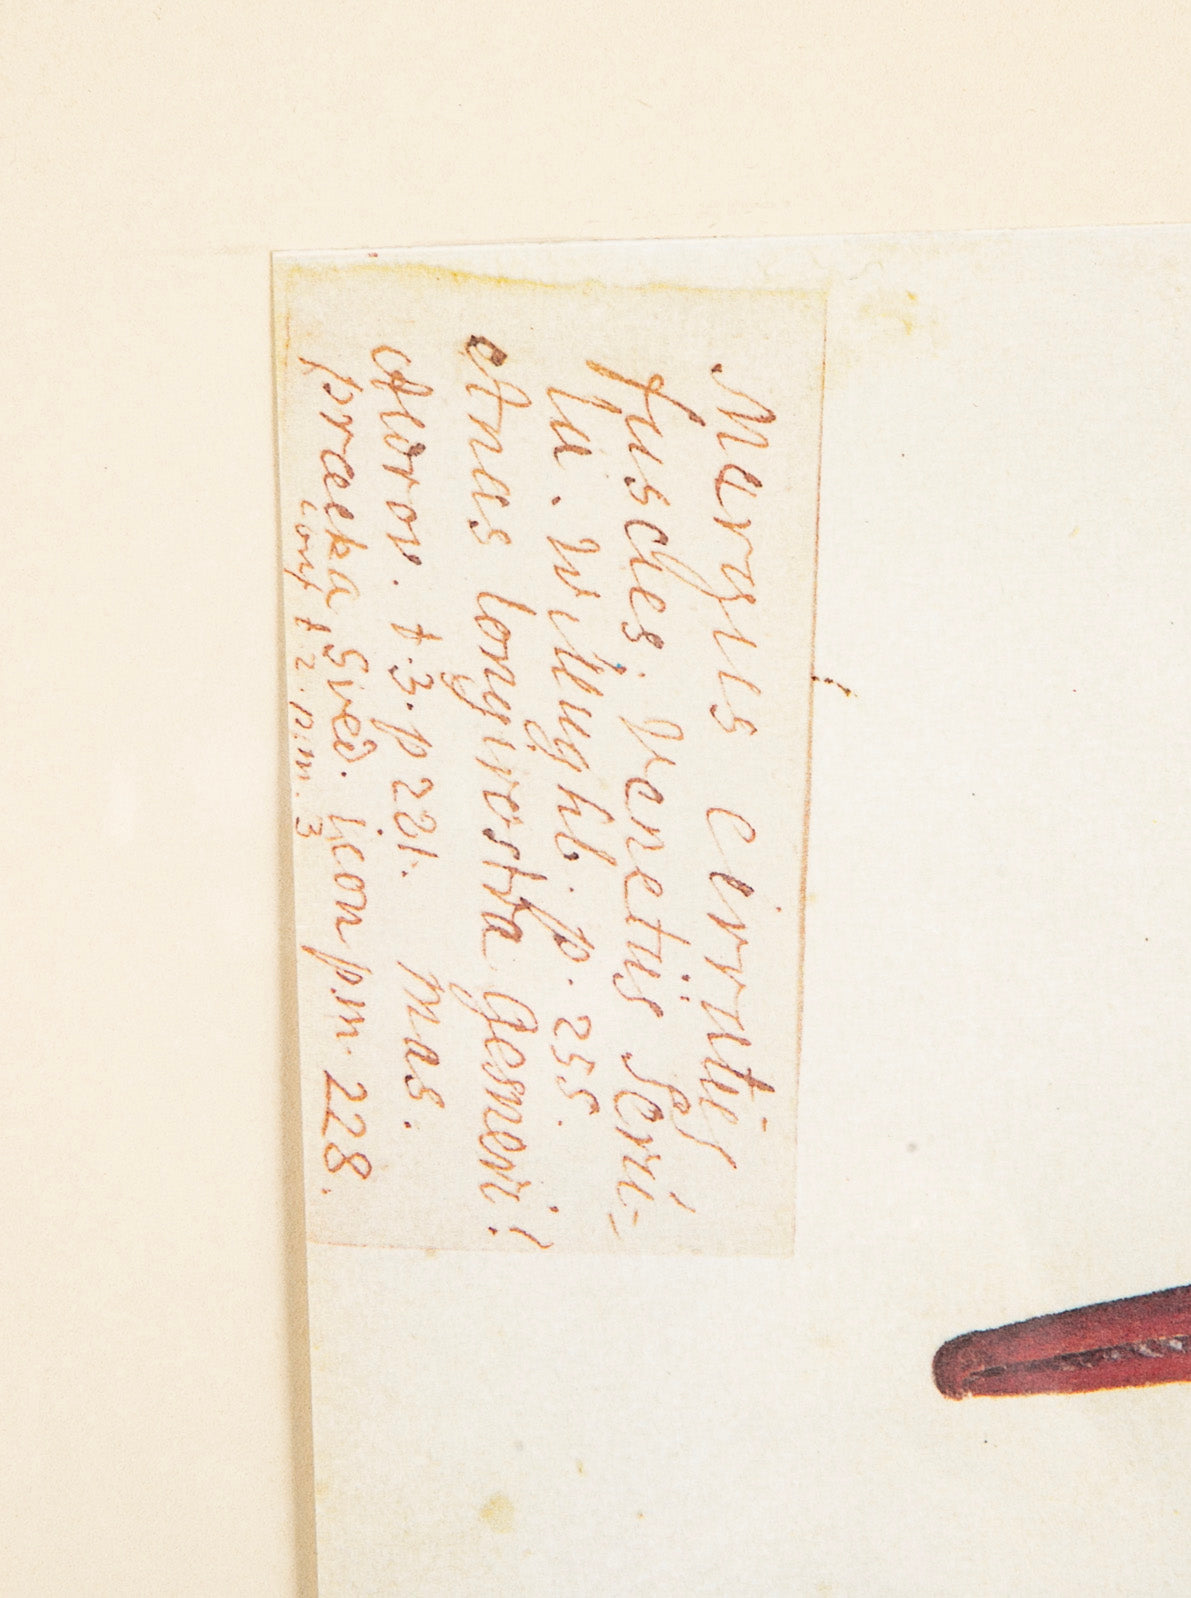 Mergus cirratus
fuscus. Venetüs Seru-
la. Willughb. p. 255.
Anas longirostra Gesneri!
Aldrov. t. 3. p 281. mas.
pracka Sved. icon p.m. 228.
conf t. 2. p.m. 3